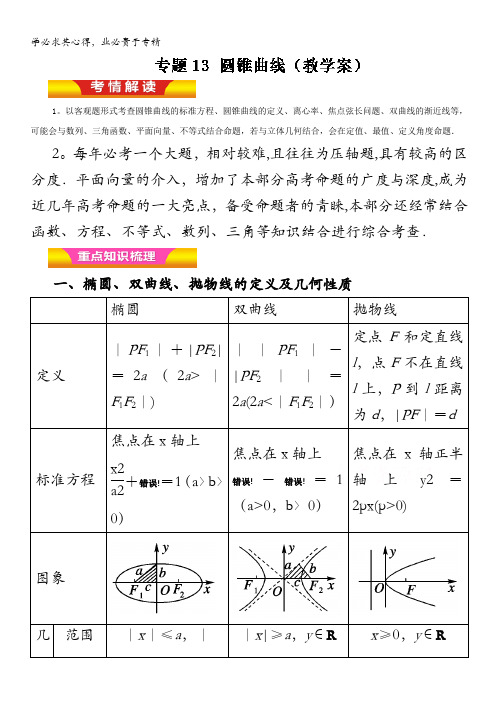 学必求其心得，业必贵于专精
专题13 圆锥曲线（教学案）
考情解读
1。以客观题形式考查圆锥曲线的标准方程、圆锥曲线的定义、离心率、焦点弦长问题、双曲线的渐近线等，
可能会与数列、三角函数、平面向量、不等式结合命题，若与立体几何结合，会在定值、最值、定义角度命题．
2。每年必考一个大题，相对较难,且往往为压轴题,具有较高的区
分度．平面向量的介入，增加了本部分高考命题的广度与深度,成为
近几年高考命题的一大亮点，备受命题者的青睐,本部分还经常结合
函数、方程、不等式、数列、三角等知识结合进行综合考查．
重点知识梳理
一、椭圆、双曲线、抛物线的定义及几何性质
椭圆 双曲线 抛物线
定义
｜PF1｜＋|PF2|
＝2a（2a>｜
F1F2｜)
｜｜PF1｜－
|PF2｜｜＝
2a(2a<｜F1F2｜）
定点F和定直线
l，点F不在直线
l上，P到l距离
为d，|PF｜＝d
标准方程
焦点在x轴上
x2/a2＋错误!＝1（a〉b〉
0）
焦点在x轴上
错误!－错误!＝1
（a>0，b〉0）
焦点在x轴正半
轴上y2＝
2px(p>0)
图象
y a b F1 c O F2 x
y a b F1 O c F2 x
y O F x
几 范围 ｜x｜≤a，｜ ｜x|≥a，y∈R x≥0，y∈R